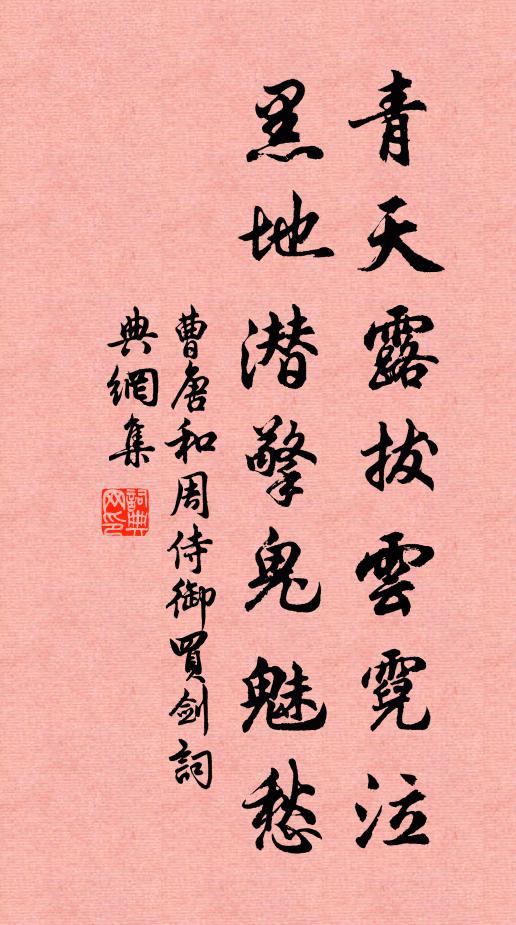 青天露拔雲霓泣
黑地潛擎鬼魅愁
曹唐和周侍御買劍詞
典網集
詞典網印